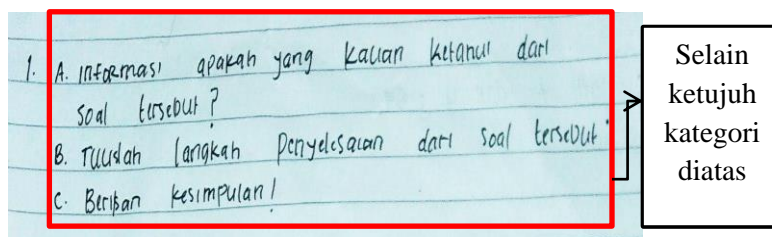 1. A. Informasi apakah yang kalian ketahui dari
soal tersebut?
B. Tulislah langkah penyelesaian dari soal tersebut
C. Berikan kesimpulan!
Selain
ketujuh
kategori
diatas